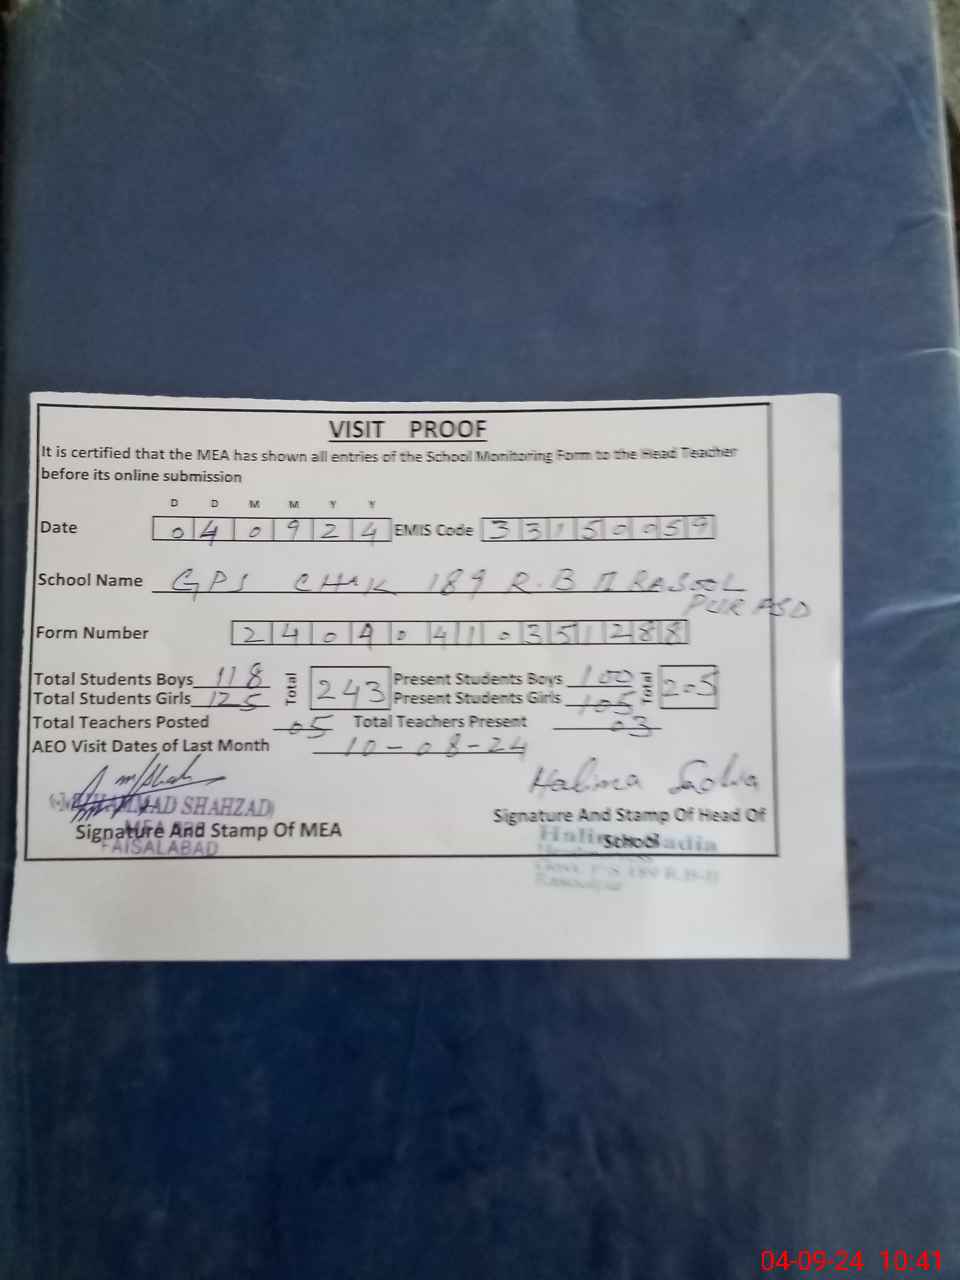 VISIT PROOF
It is certified that the MEA has shown all entries of the School Monitoring Form to the Head Teacher
before its online submission
D D M M Y Y
Date 040924 EMIS Code 33150059
School Name GPS CHAK 189 R.B II RASOOL
PUR FSD
Form Number 24090410351288
Total Students Boys 118 Total 243 Present Students Boys 100 Total 205
Total Students Girls 125 Present Students Girls 105
Total Teachers Posted 05 Total Teachers Present 03
AEO Visit Dates of Last Month 10-08-24
Halima Sadia
MUHAMMAD SHAHZAD
Signature And Stamp Of MEA
MEA
FAISALABAD
Signature And Stamp Of Head Of
School
Halima Sadia
Govt. P/S 189 R.B-II
Rasoolpur
04-09-24 10:41